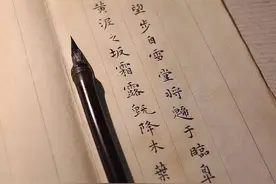 望步自雪堂將歸于臨皋
黄泥之坂霜露既降木葉